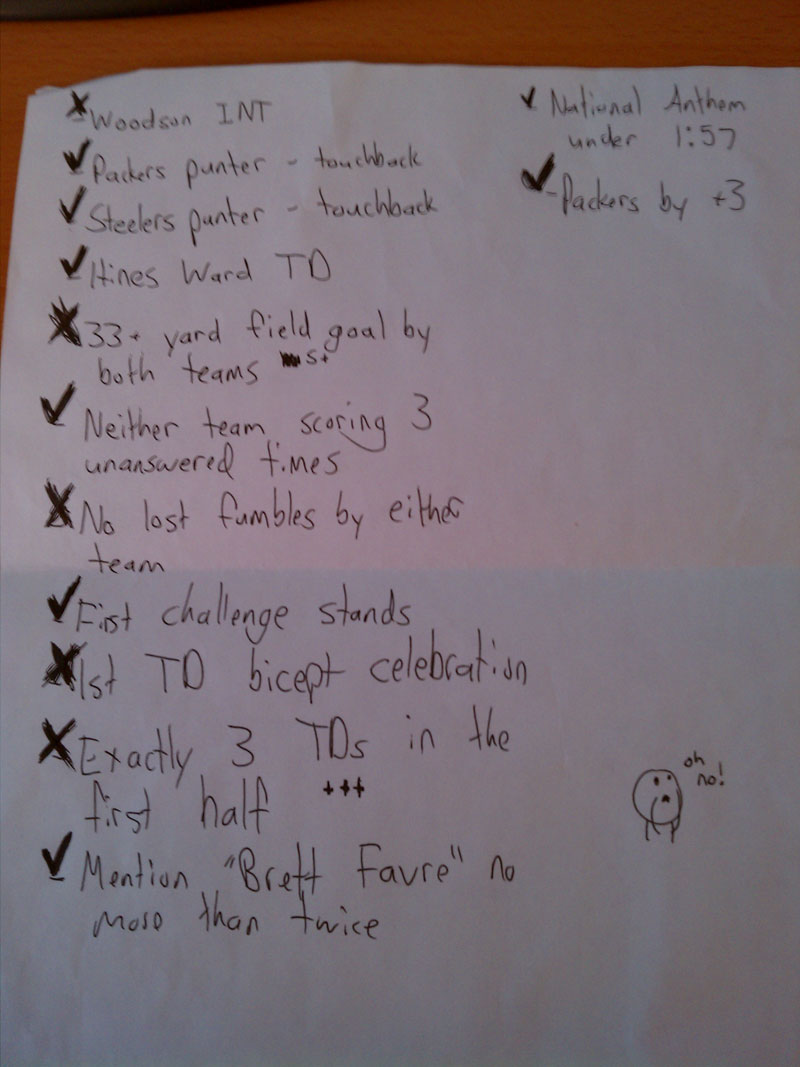 Woodson INT
Packers punter - touchback
Steelers punter - touchback
Hines Ward TD
33+ yard field goal by
both teams
Neither team scoring 3
unanswered times
No lost fumbles by either
team
First challenge stands
1st TD bicept celebration
Exactly 3 TDs in the
first half +++
Mention "Brett Favre" no
more than twice
National Anthem
under 1:57
-Packers by +3
oh
no!